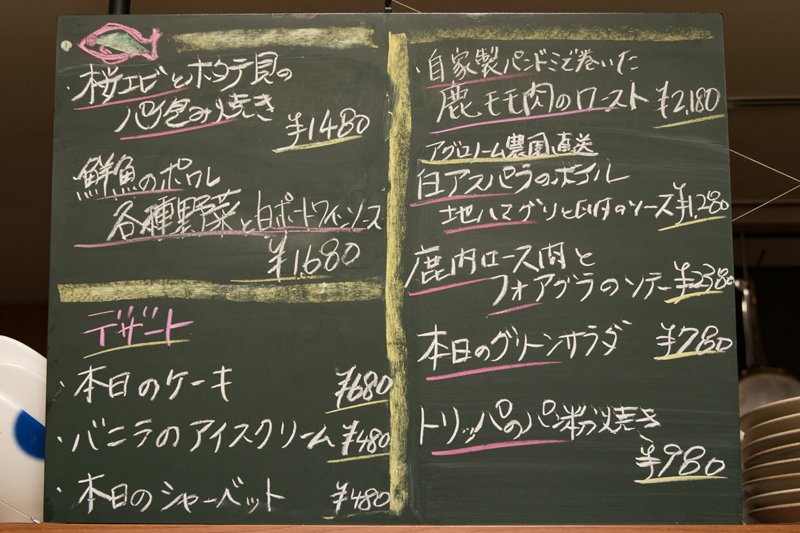 ・桜エビとホタテ貝の
パイ包み焼き
¥1480
鮮魚のポワレ
各種野菜と白ポートワインソース
¥1,680
デザート
・本日のケーキ ¥680
・バニラのアイスクリーム ¥480
・本日のシャーベット ¥480
・自家製パンドミで巻いた
鹿モモ肉のロースト ¥2,180
アグリーム農園直送
白アスパラのボイル
地ハマグリとのソース ¥1,280
鹿肉ロース肉と
フォアグラのソテー ¥2380
本日のグリーンサラダ ¥780
トリッパのパン粉焼き
¥980